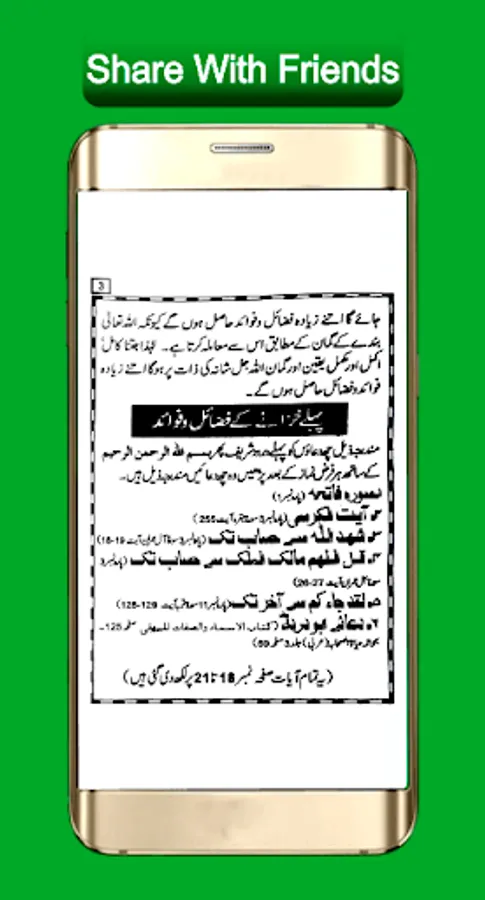 Share With Friends
3
جائے گا اتنے زیادہ فضائل و فوائد حاصل ہوں گے کیونکہ اللہ تعالیٰ
بندے کے گمان کے مطابق اس سے معاملہ کرتا ہے۔ لہٰذا جتنا کامل
اکمل اور مکمل یقین اور گمان اللہ جل شانہ کی ذات پر ہوگا اتنے زیادہ
فوائد و فضائل حاصل ہوں گے۔
پہلے خزانے کے فضائل و فوائد
مندرجہ ذیل چھ دعاؤں کو پہلے درود شریف پھر بسم اللہ الرحمن الرحیم
کے ساتھ ہر فرض نماز کے بعد پڑھیں وہ چھ دعائیں مندرجہ ذیل ہیں۔
سورہ فاتحہ (پارہ نمبر 1)
۲۔ آیت الکرسی (پارہ نمبر 3 سورۃ بقرہ آیت 255)
۳۔ شھد اللہ سے حساب تک (پارہ نمبر 3 سورۃ آل عمران آیت 19-18)
۴۔ قل اللھم مالک الملک سے حساب تک (پارہ نمبر 3
سورۃ آل عمران آیت 27-26)
۵۔ لقد جاء کم سے آخر تک (پارہ نمبر 11 سورۃ آیت 129-128)
۶۔ دعائے ابو درداء (کتاب الاسماء والصفات للبیہقی صفحہ 125۔
حیاۃ الصحابہ (عربی) جلد 3 صفحہ 69)
(یہ تمام آیات صفحہ نمبر 18 تا 21 پر لکھ دی گئی ہیں)